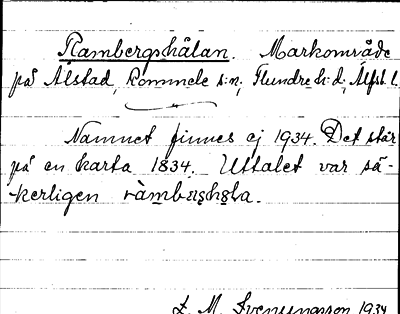 Rambergshålan. Markområde
på Ålstad, Rommele s:n, Flundre h:d, Älfsb. l.
Namnet finnes ej 1934. Det står
på en karta 1834. Uttalet var sä-
kerligen
D. M. Svenningsson 1934